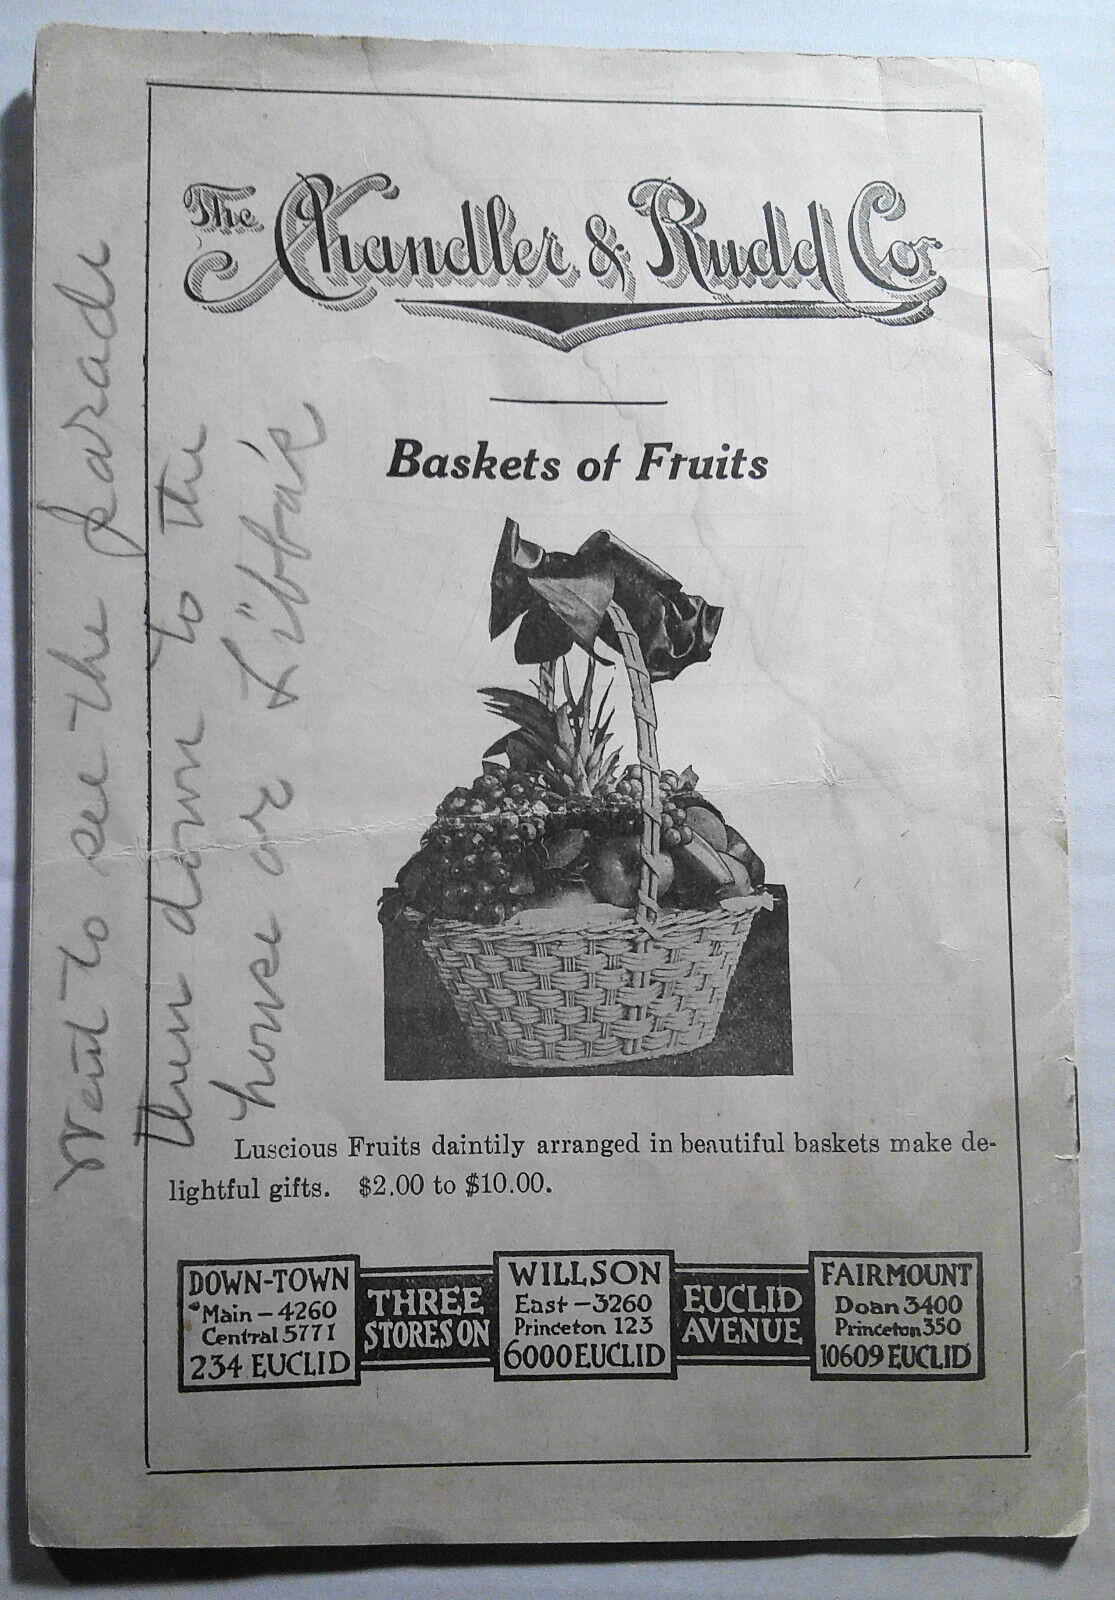 The Chandler & Rudd Co.
Baskets of Fruits
Luscious Fruits daintily arranged in beautiful baskets make de-
lightful gifts. $2.00 to $10.00.
DOWN-TOWN
Main - 4260
Central 5771
234 EUCLID
THREE
STORES ON
WILLSON
East - 3260
Princeton 123
6000 EUCLID
EUCLID
AVENUE
FAIRMOUNT
Doan 3400
Princeton 350
10609 EUCLID
Went to see the parade
then down to the
house or